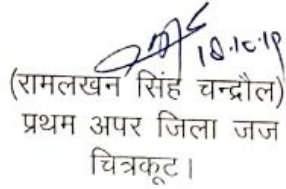 18.10.19
(रामलखन सिंह चन्द्रौल)
प्रथम अपर जिला जज
चित्रकूट।